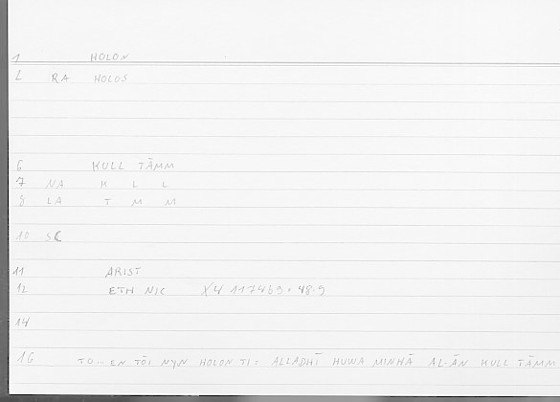 1 HOLON
2 RA HOLOS
6 KULL TĀMM
7 NA K L L
8 LA T M M
10 SC
11 ARIST
12 ETH NIC X4 1174b9. 48.9
14
16 TO.. EN TŌI NYN HOLON TI = ALLADHĪ HUWA MINHĀ AL-ĀN KULL TĀMM